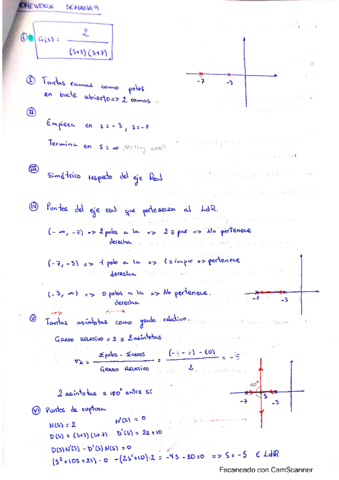 HOMEWORK SEMANA 9
① G(s) = 2 / (s+3)(s+7)
-7 -3
Ⅰ Tantas ramas como polos
en bucle abierto => 2 ramas
Ⅱ
Empieza en s = -3, s = -7
Termina en s = ∞
Ⅲ Simétrico respecto del eje Real
Ⅳ Puntos del eje real que pertenecen al LdR.
(-∞, -7) => 2 polos a la derecha => 2 es par => No pertenece
(-7, -3) => 1 polo a la derecha => 1 es impar => pertenece
(-3, ∞) => 0 polos a la derecha => No pertenece.
-7 -3
Ⅴ Tantas asíntotas como grado relativo.
GRADO RELATIVO = 2 = 2 asíntotas
σA = (Σ polos - Σ ceros) / GRADO RELATIVO = ((-7-3) - (0)) / 2 = -5
2 asíntotas => 180° entre sí
90°
-7 -5 -3
Ⅵ Puntos de ruptura
N(s) = 2 N'(s) = 0
D(s) = (s+3)(s+7) D'(s) = 2s+10
D(s)N'(s) - D'(s)N(s) = 0
(s²+10s+21)·0 - (2s+10)·2 = -4s - 20 = 0 => s = -5 ∈ LdR
Escaneado con CamScanner